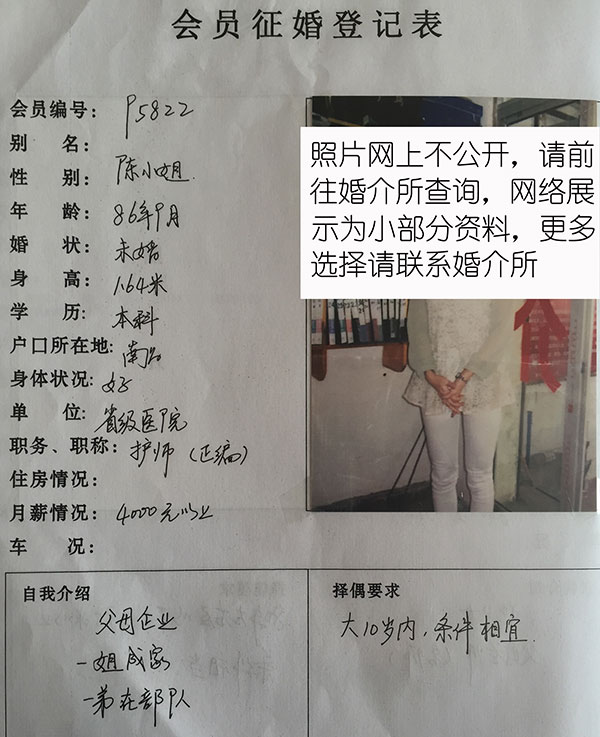 会员征婚登记表
会员编号: P5822
别 名:
性 别: 陈小姐
年 龄: 86年9月
婚 状: 未婚
身 高: 1.64米
学 历: 本科
户口所在地: 南昌
身体状况: 好
单 位: 省级医院
职务、职称: 护师 (正编)
住房情况:
月薪情况: 4000元以上
车 况:
照片网上不公开，请前
往婚介所查询，网络展
示为小部分资料，更多
选择请联系婚介所
自我介绍
父母企业
一姐成家
一弟在部队
择偶要求
大10岁内、条件相宜